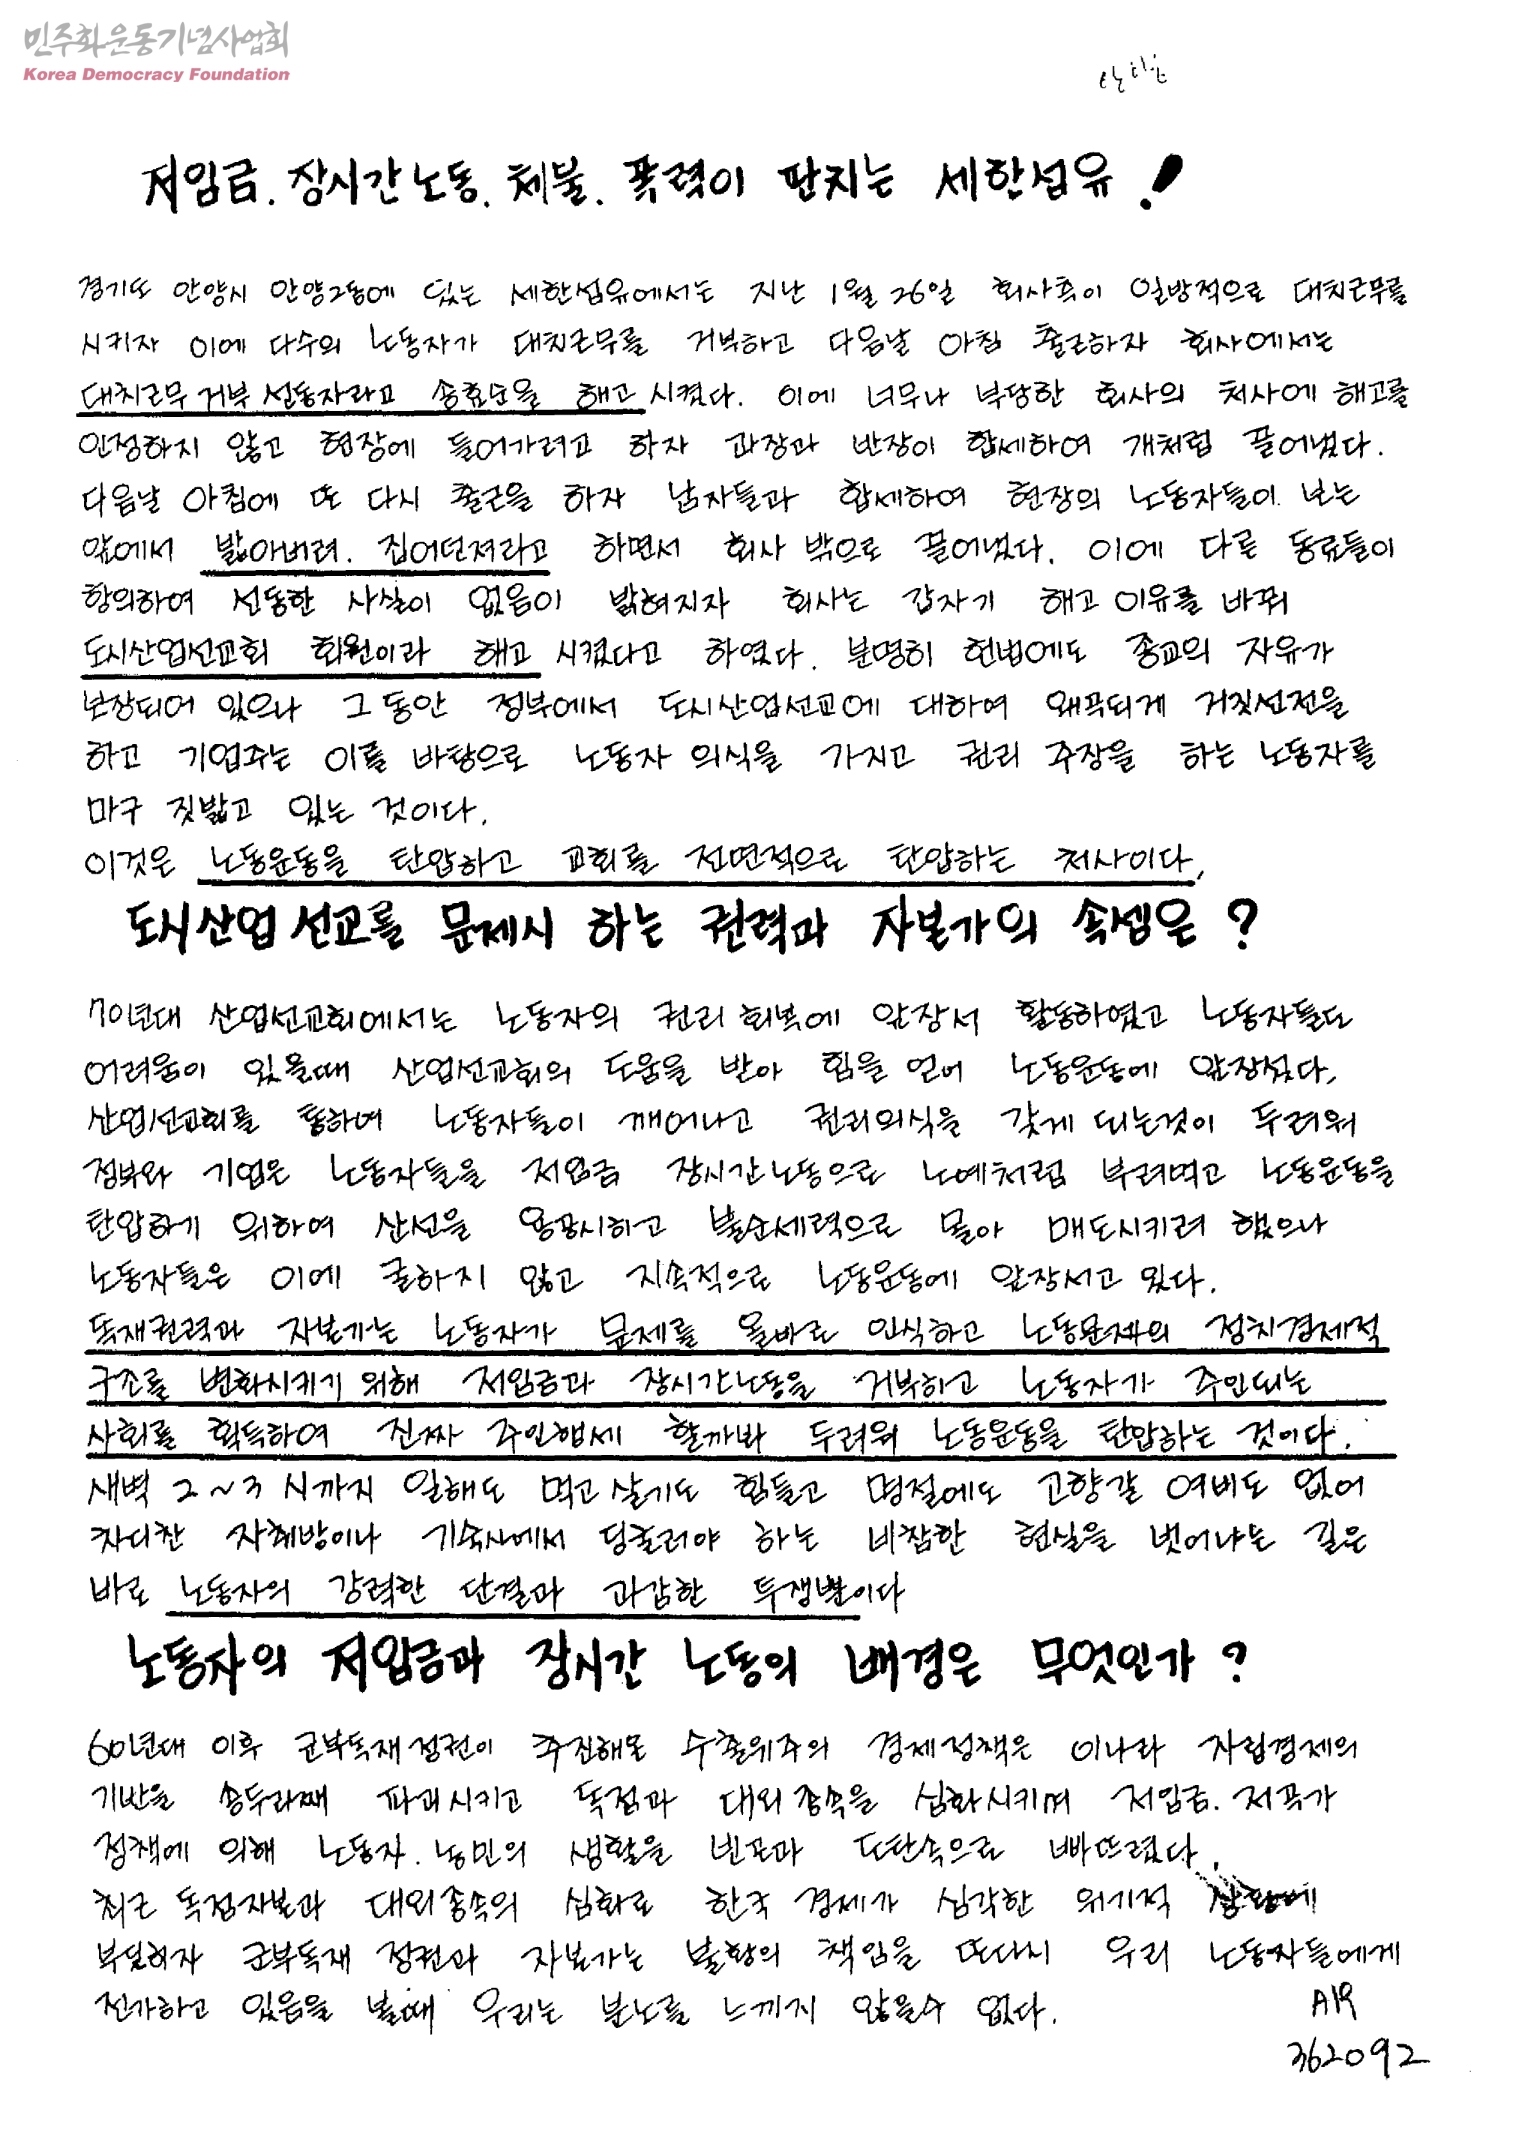 민주화운동기념사업회
Korea Democracy Foundation
저임금. 장시간노동. 체불. 폭력이 판치는 세한섬유!
경기도 안양시 안양2동에 있는 세한섬유에서는 지난 1월 26일 회사측이 일방적으로 대치근무를
시키자 이에 다수의 노동자가 대치근무를 거부하고 다음날 아침 출근하자 회사에서는
대치근무 거부 선동자라고 송효순을 해고 시켰다. 이에 너무나 부당한 회사의 처사에 해고를
인정하지 않고 현장에 들어가려고 하자 과장과 반장이 합세하여 개처럼 끌어냈다.
다음날 아침에 또 다시 출근을 하자 남자들과 합세하여 현장의 노동자들이 보는
앞에서 밟아버려. 집어던져라고 하면서 회사 밖으로 끌어냈다. 이에 다른 동료들이
항의하여 선동한 사실이 없음이 밝혀지자 회사는 갑자기 해고 이유를 바꿔
도시산업선교회 회원이라 해고 시켰다고 하였다. 분명히 헌법에도 종교의 자유가
보장되어 있으나 그 동안 정부에서 도시산업선교에 대하여 왜곡되게 거짓선전을
하고 기업주는 이를 바탕으로 노동자 의식을 가지고 권리 주장을 하는 노동자를
마구 짓밟고 있는 것이다.
이것은 노동운동을 탄압하고 교회를 전면적으로 탄압하는 처사이다.
도시산업선교를 문제시 하는 권력과 자본가의 속셈은?
70년대 산업선교회에서는 노동자의 권리 회복에 앞장서 활동하였고 노동자들도
어려움이 있을때 산업선교회의 도움을 받아 힘을 얻어 노동운동에 앞장섰다.
산업선교회를 통하여 노동자들이 깨어나고 권리의식을 갖게 되는것이 두려워
정부와 기업은 노동자들을 저임금 장시간노동으로 노예처럼 부려먹고 노동운동을
탄압하기 위하여 산선을 용공시하고 불순세력으로 몰아 매도시키려 했으나
노동자들은 이에 굴하지 않고 지속적으로 노동운동에 앞장서고 있다.
독재권력과 자본가는 노동자가 문제를 올바로 인식하고 노동문제의 정치경제적
구조를 변화시키기 위해 저임금과 장시간노동을 거부하고 노동자가 주인되는
사회를 획득하여 진짜 주인행세 할까봐 두려워 노동운동을 탄압하는 것이다.
새벽 2~3 시까지 일해도 먹고 살기도 힘들고 명절에도 고향갈 여비도 없어
차디찬 자취방이나 기숙사에서 딩굴러야 하는 비참한 현실을 벗어나는 길은
바로 노동자의 강력한 단결과 과감한 투쟁뿐이다
노동자의 저임금과 장시간 노동의 배경은 무엇인가?
60년대 이후 군부독재정권이 추진해온 수출위주의 경제정책은 이나라 자립경제의
기반을 송두리째 파괴시키고 독점과 대외종속을 심화시키며 저임금. 저곡가
정책에 의해 노동자. 농민의 생활을 빈곤과 도탄속으로 빠뜨렸다.
최근 독점자본과 대외종속의 심화로 한국 경제가 심각한 위기적 상황에
부딪히자 군부독재 정권과 자본가는 불황의 책임을 또다시 우리 노동자들에게
전가하고 있음을 볼때 우리는 분노를 느끼지 않을수 없다.
AR
362092